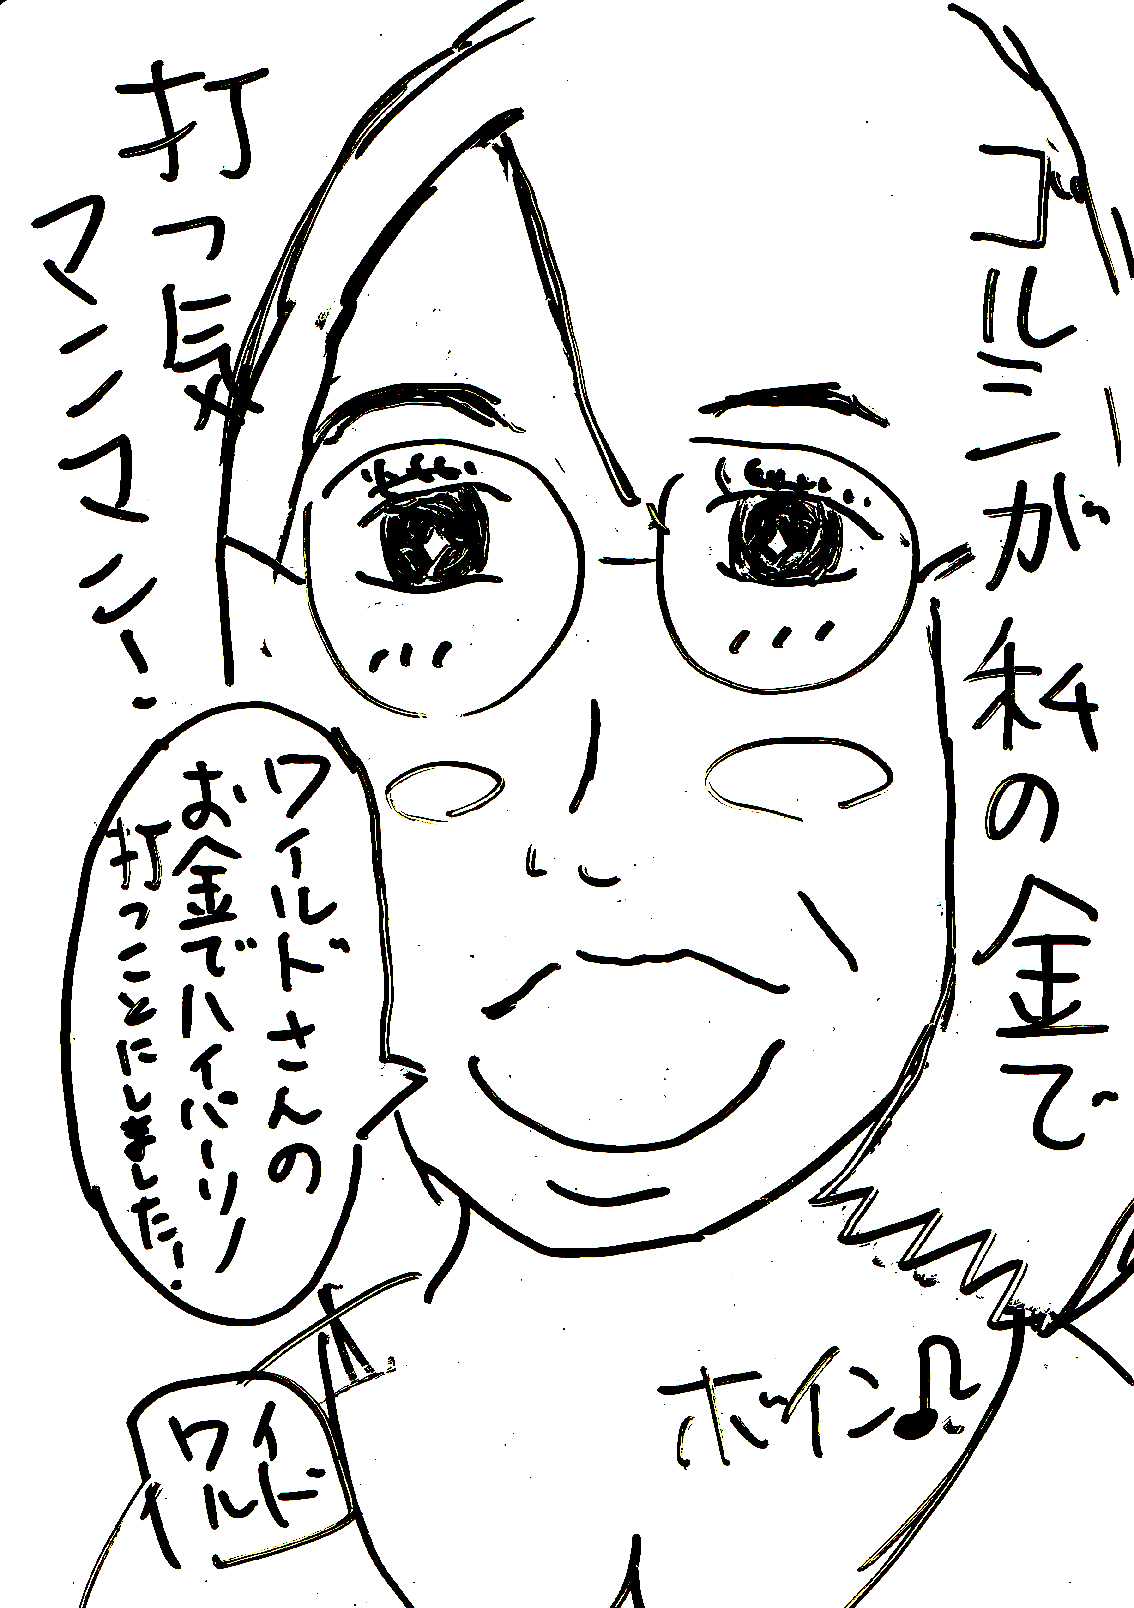 ゴルシが私の金で
打つ気
マンマン！
ワイルドさんの
お金でハイパーリノ
打つことにしました！
ボイン♫
ワイ
ルド